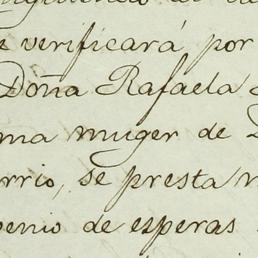 e verificará por
Doña Rafaela
ma muger de
rrio, se presta
venio de esperas